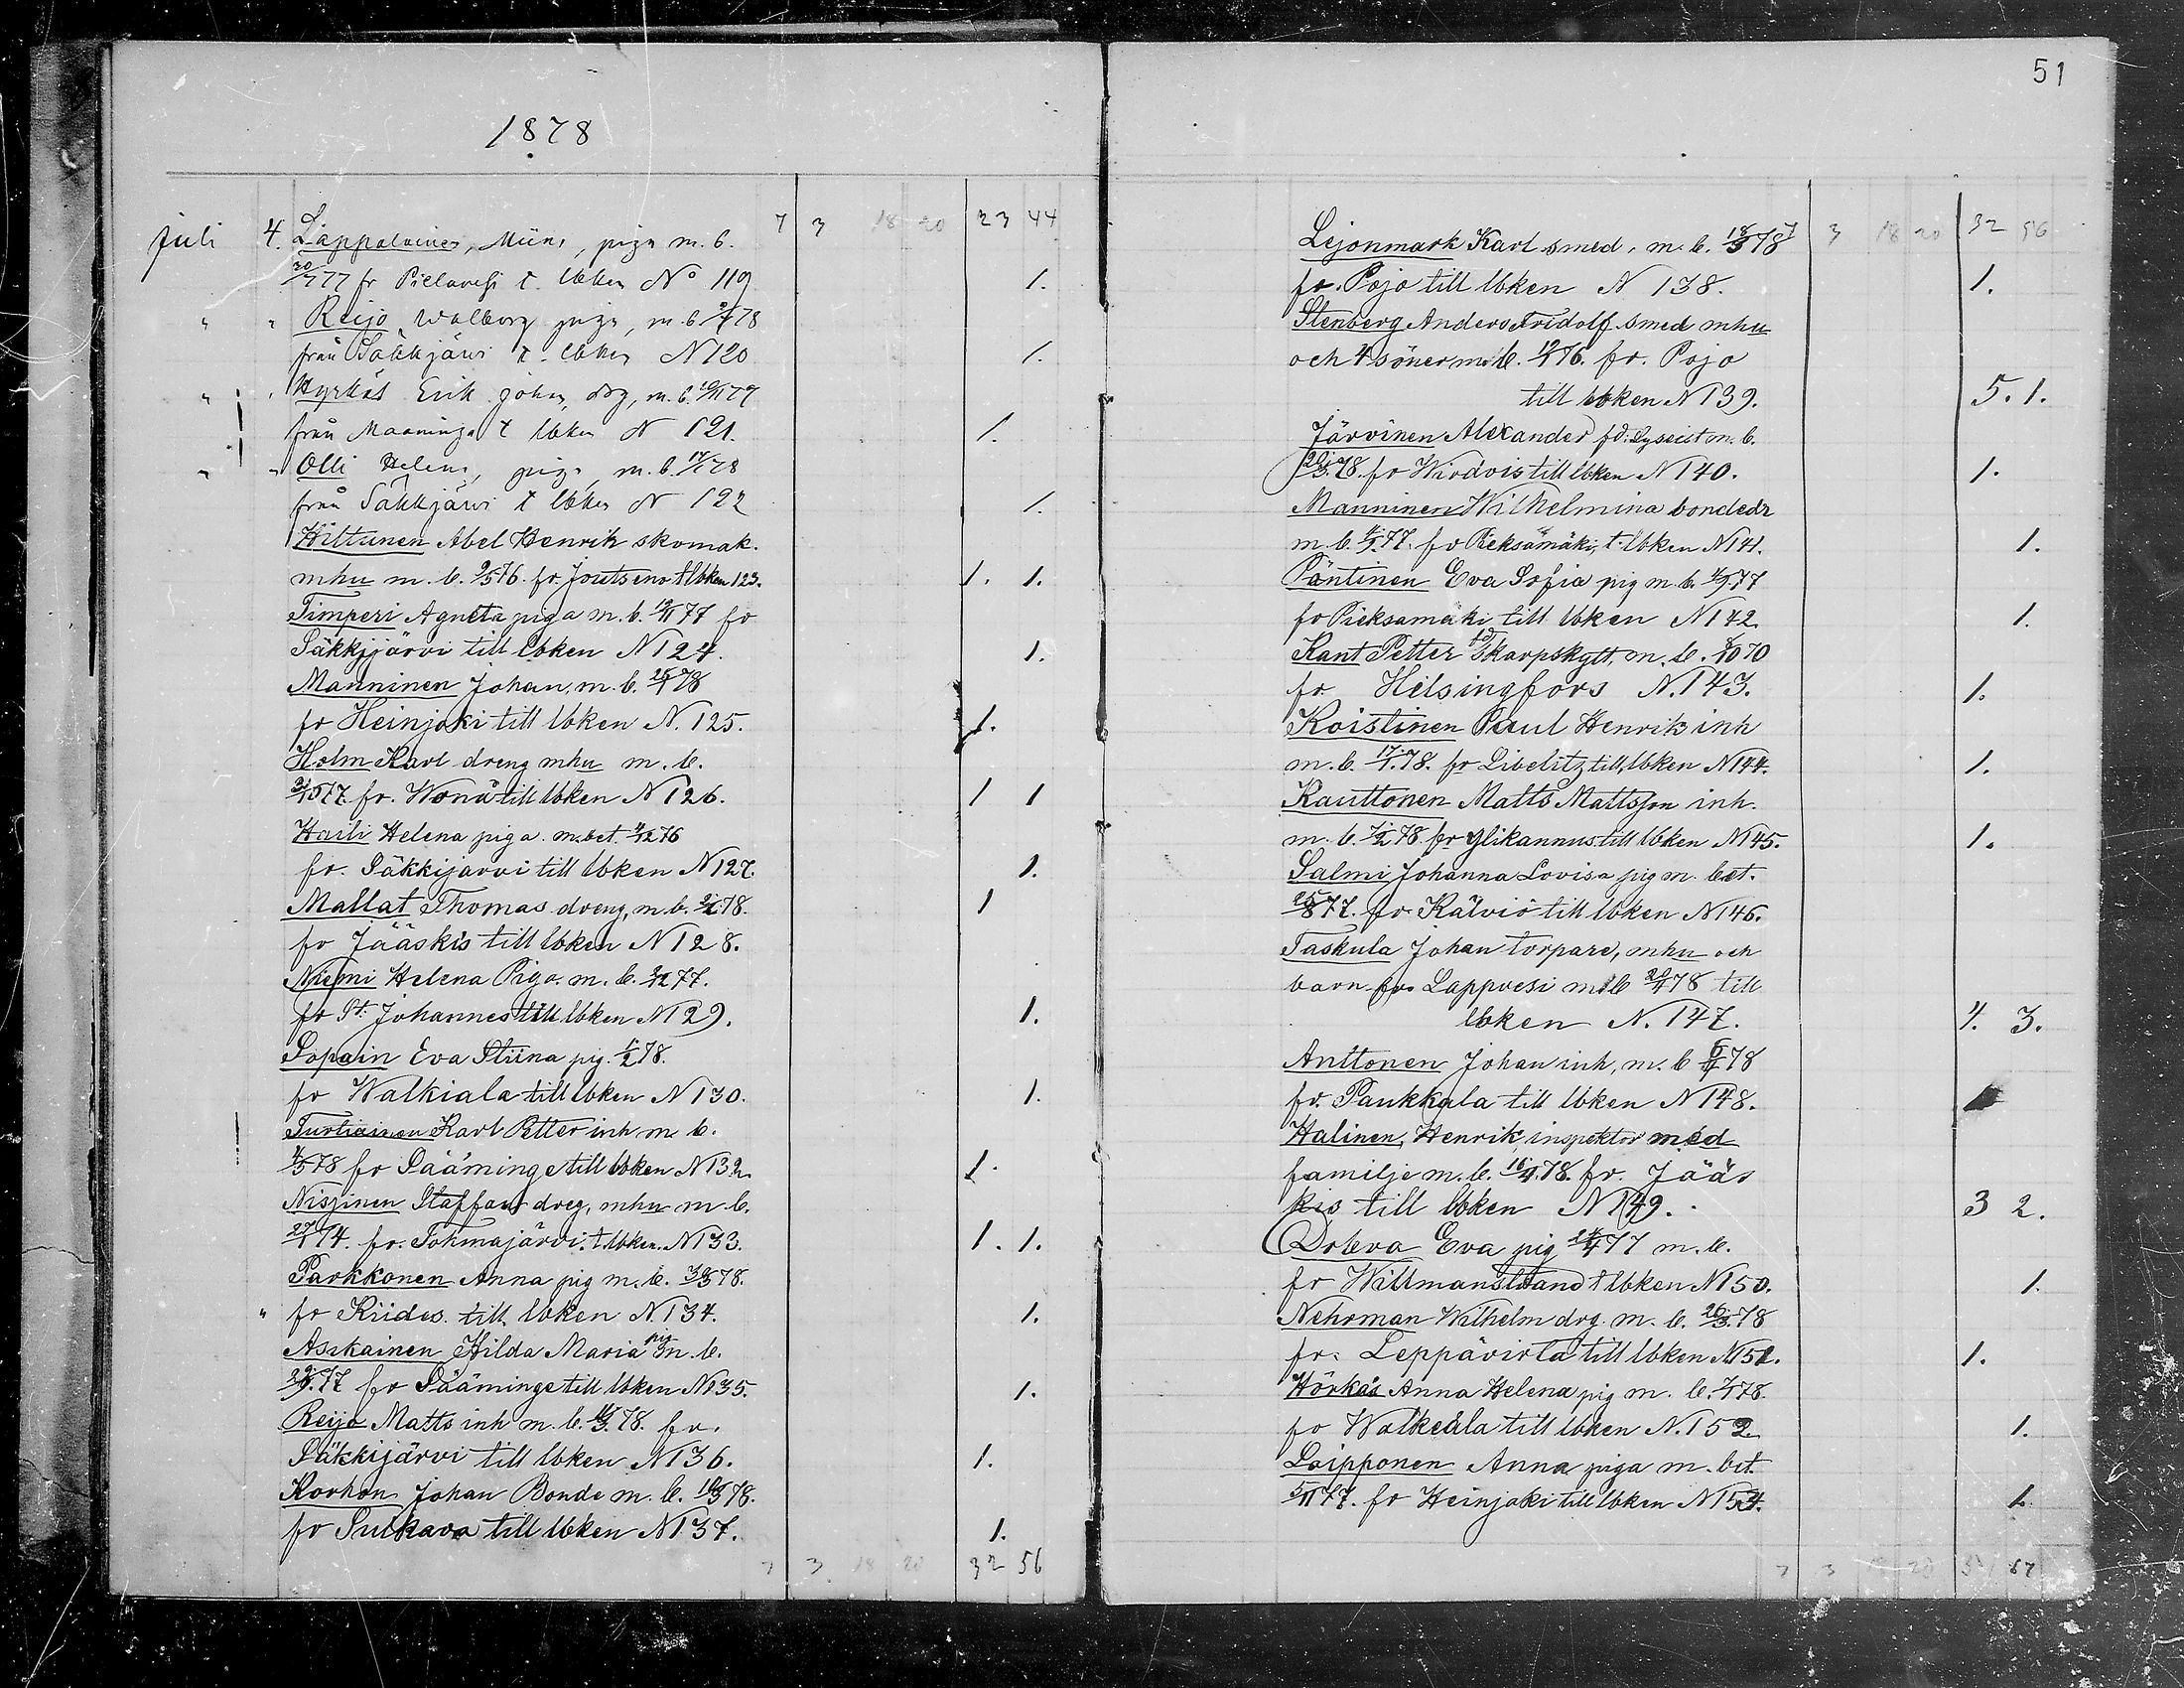 51
1878
7 3 18 20 23 44
juli 4. Lappalainen, Miina, piga m. b.
30/7 77 fr Pielavesi t. lbken No 119 1.
" " Reijo, Walborg piga, m. b 9/4 78
från Säkkjärvi t. lbken N 120 1.
" " Hyrkäs Erik Johan, drg, m. b. 10/11 77
från Maaninga t lbken N 121. 1.
" " Olli Helena, piga, m. b. 17/1 78
från Säkkjärvi t lbken N 122 1.
Hiltunen Abel Henrik skomak.
mhu m. b. 9/5 76. fr. Joutseno t lbken 123. 1. 1.
Timperi Agneta piga m. b. 19/11 77 fr
Säkkjjärvi till lbken N 124. 1.
Manninen Johan, m. b. 25/4 78
fr Heinjoki till lbken N. 125. 1.
Holm Karl dreng mhu m. b.
31/5 77. fr. Wonå till lbken N 126. 1 1
Haili Helena piga. m. bet. 4/12 76
fr. Säkkijarvi till lbken N 127. 1.
Mallat Thomas dreng, m. b. 2/1 78. 1
fr Jääskis till lbken N 128.
Niemi Helena Piga. m. b. 2/12 77.
fr St. Johannes till lbken N 129. 1.
Sopain Eva Stiina pig. 1/2 78.
fr Walkiala till lbken N 130. 1.
Turtiainen Karl Petter inh m b.
4/5 78 fr Sääminge till lbken N 132. 1.
Nissinen Staffan dreg, mhu m. b.
27/1 74. fr. Tohmajärvi. t. lbken. N 133. 1. 1.
Parkkonen Anna pig m. b. 30/3 78.
" fr Kiides. till lbken N. 134. 1.
Asikainen Hilda Maria pig m. b.
29/9. 77 fr Sääminge till lbken N 135. 1.
Reijo Matts inh m. b. 4/3. 78. fr.
Säkkijärvi till lbken N 136. 1.
Korhon Johan Bonde m. b. 16/3 78.
fr Sulkava till lbken N 137. 1.
7 3 18 20 32 56
7 3 18 20 32 56
Lejonmark Karl smed, m. b. 18/3 78
fr. Pojo till lbken N 138. 1.
Stenberg Anders Fridolf smed mhu
och 4 söner m. b. 19/1 76. fr. Pojo
till lbken N 139. 5. 1.
Järvinen Alexander fd. Lyseist m. b.
20/3. 78. fr Wirdois till lbken N 140. 1.
Manninen Wilhelmina bondedr
m. b. 4/9. 77. fr Pieksämäki, t. lbken N 141. 1.
Pöntinen Eva Sofia pig m. b. 4/9. 77
fr Pieksamäki till lbken N 142. 1.
Kant Petter fd Skarpskytt, m. b. 8/10 70
fr. Helsingfors N. 143. 1.
Koistinen Paul Henrik inh
m. b. 17/1. 78. fr Libelitz till, lbken N 144. 1.
Kauttonen Matts Mattsson inh.
m. b. 7/2 78. fr Ylikannus till lbken N 145. 1.
Salmi Johanna Lovisa pig m. bet.
25/8 77. fr. Kälviö till lbken N 146.
Taskula Johan torpare, mhu och
barn fr. Lappvesi m b 20/4 78 till
lbken N. 147. 4. 3.
Anttonen Johan inh, m. b 6/4 78
fr. Paukkala till lbken N 148.
Halinen, Henrik, inspektor med
familje m. b. 16/4. 78. fr. Jääs
kis till lbken N 149. 3 2.
Doleva Eva pig 24/4 77 m. b.
fr Willmanstrand t lbken N 150. 1.
Nehrman Wilhelm drg. m. b. 26/3. 78
fr. Leppävirta till lbken N 151. 1.
Hörkäs Anna Helena pig m. b. 7/1 78.
fr Walkeala till lbken N. 152. 1.
Loipponen Anna piga m. bet.
5/11 77. fr Heinjoki till lbken N 154. 1.
7 3 18 20 51 67